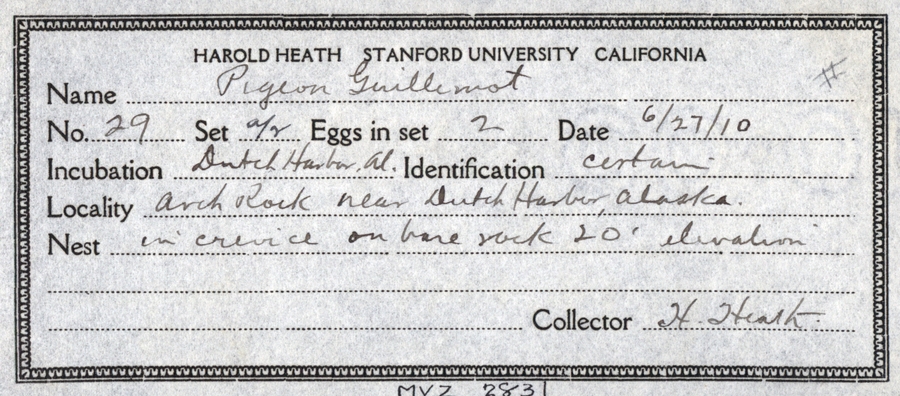 HAROLD HEATH STANFORD UNIVERSITY CALIFORNIA
#
Name Pigeon Guillemot
No. 29 Set a/2 Eggs in set 2 Date 6/27/10
Incubation Dutch Harbor, Al. Identification certain
Locality Arch Rock near Dutch Harbor, Alaska.
Nest in crevice on bare rock 20' elevation
Collector H. Heath.
MVZ 2831